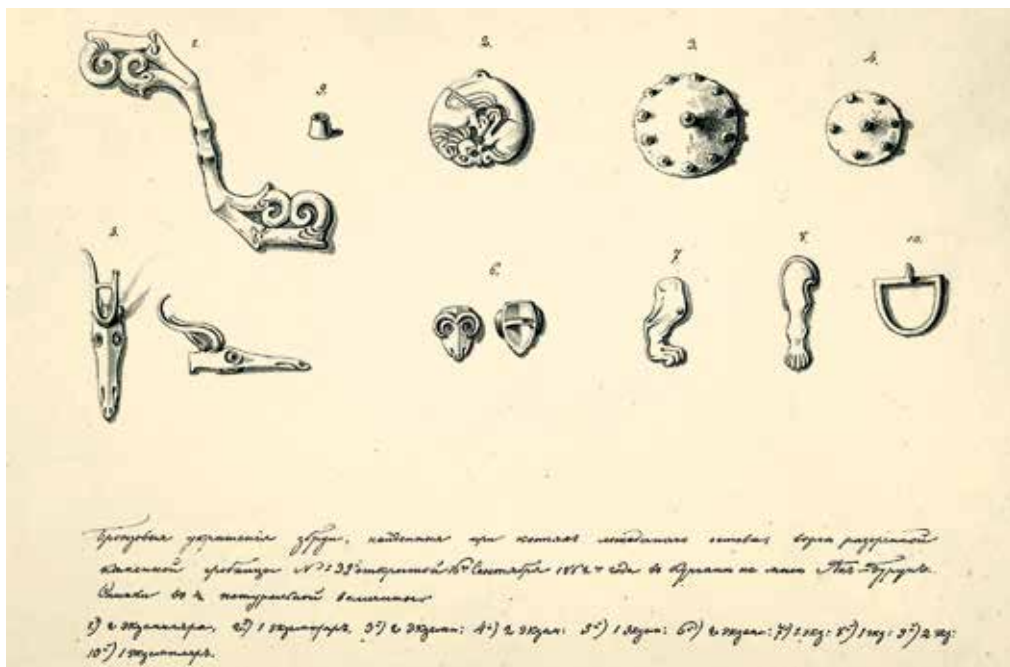 1. 2. 3. 4.
9.
5. 6. 7. 8. 10.
Бронзовыя украшенія збруи, найденныя при костяхъ лошадинаго остова, возлѣ разоренной
каменной гробницы № 32 открытой Сентября года въ Курганѣ на мысѣ Акъ-Бурунъ.
Снимки въ натуральной величины
1) 2 экземпляра, 2) 1 экземпляръ, 3) 2 экземп: 4) 2 экзем: 5) 1 экзем: 6) 2 экзем: 7) 1 экз: 8) 1 экз: 9) 2 экз:
10) 1 экземпляръ.